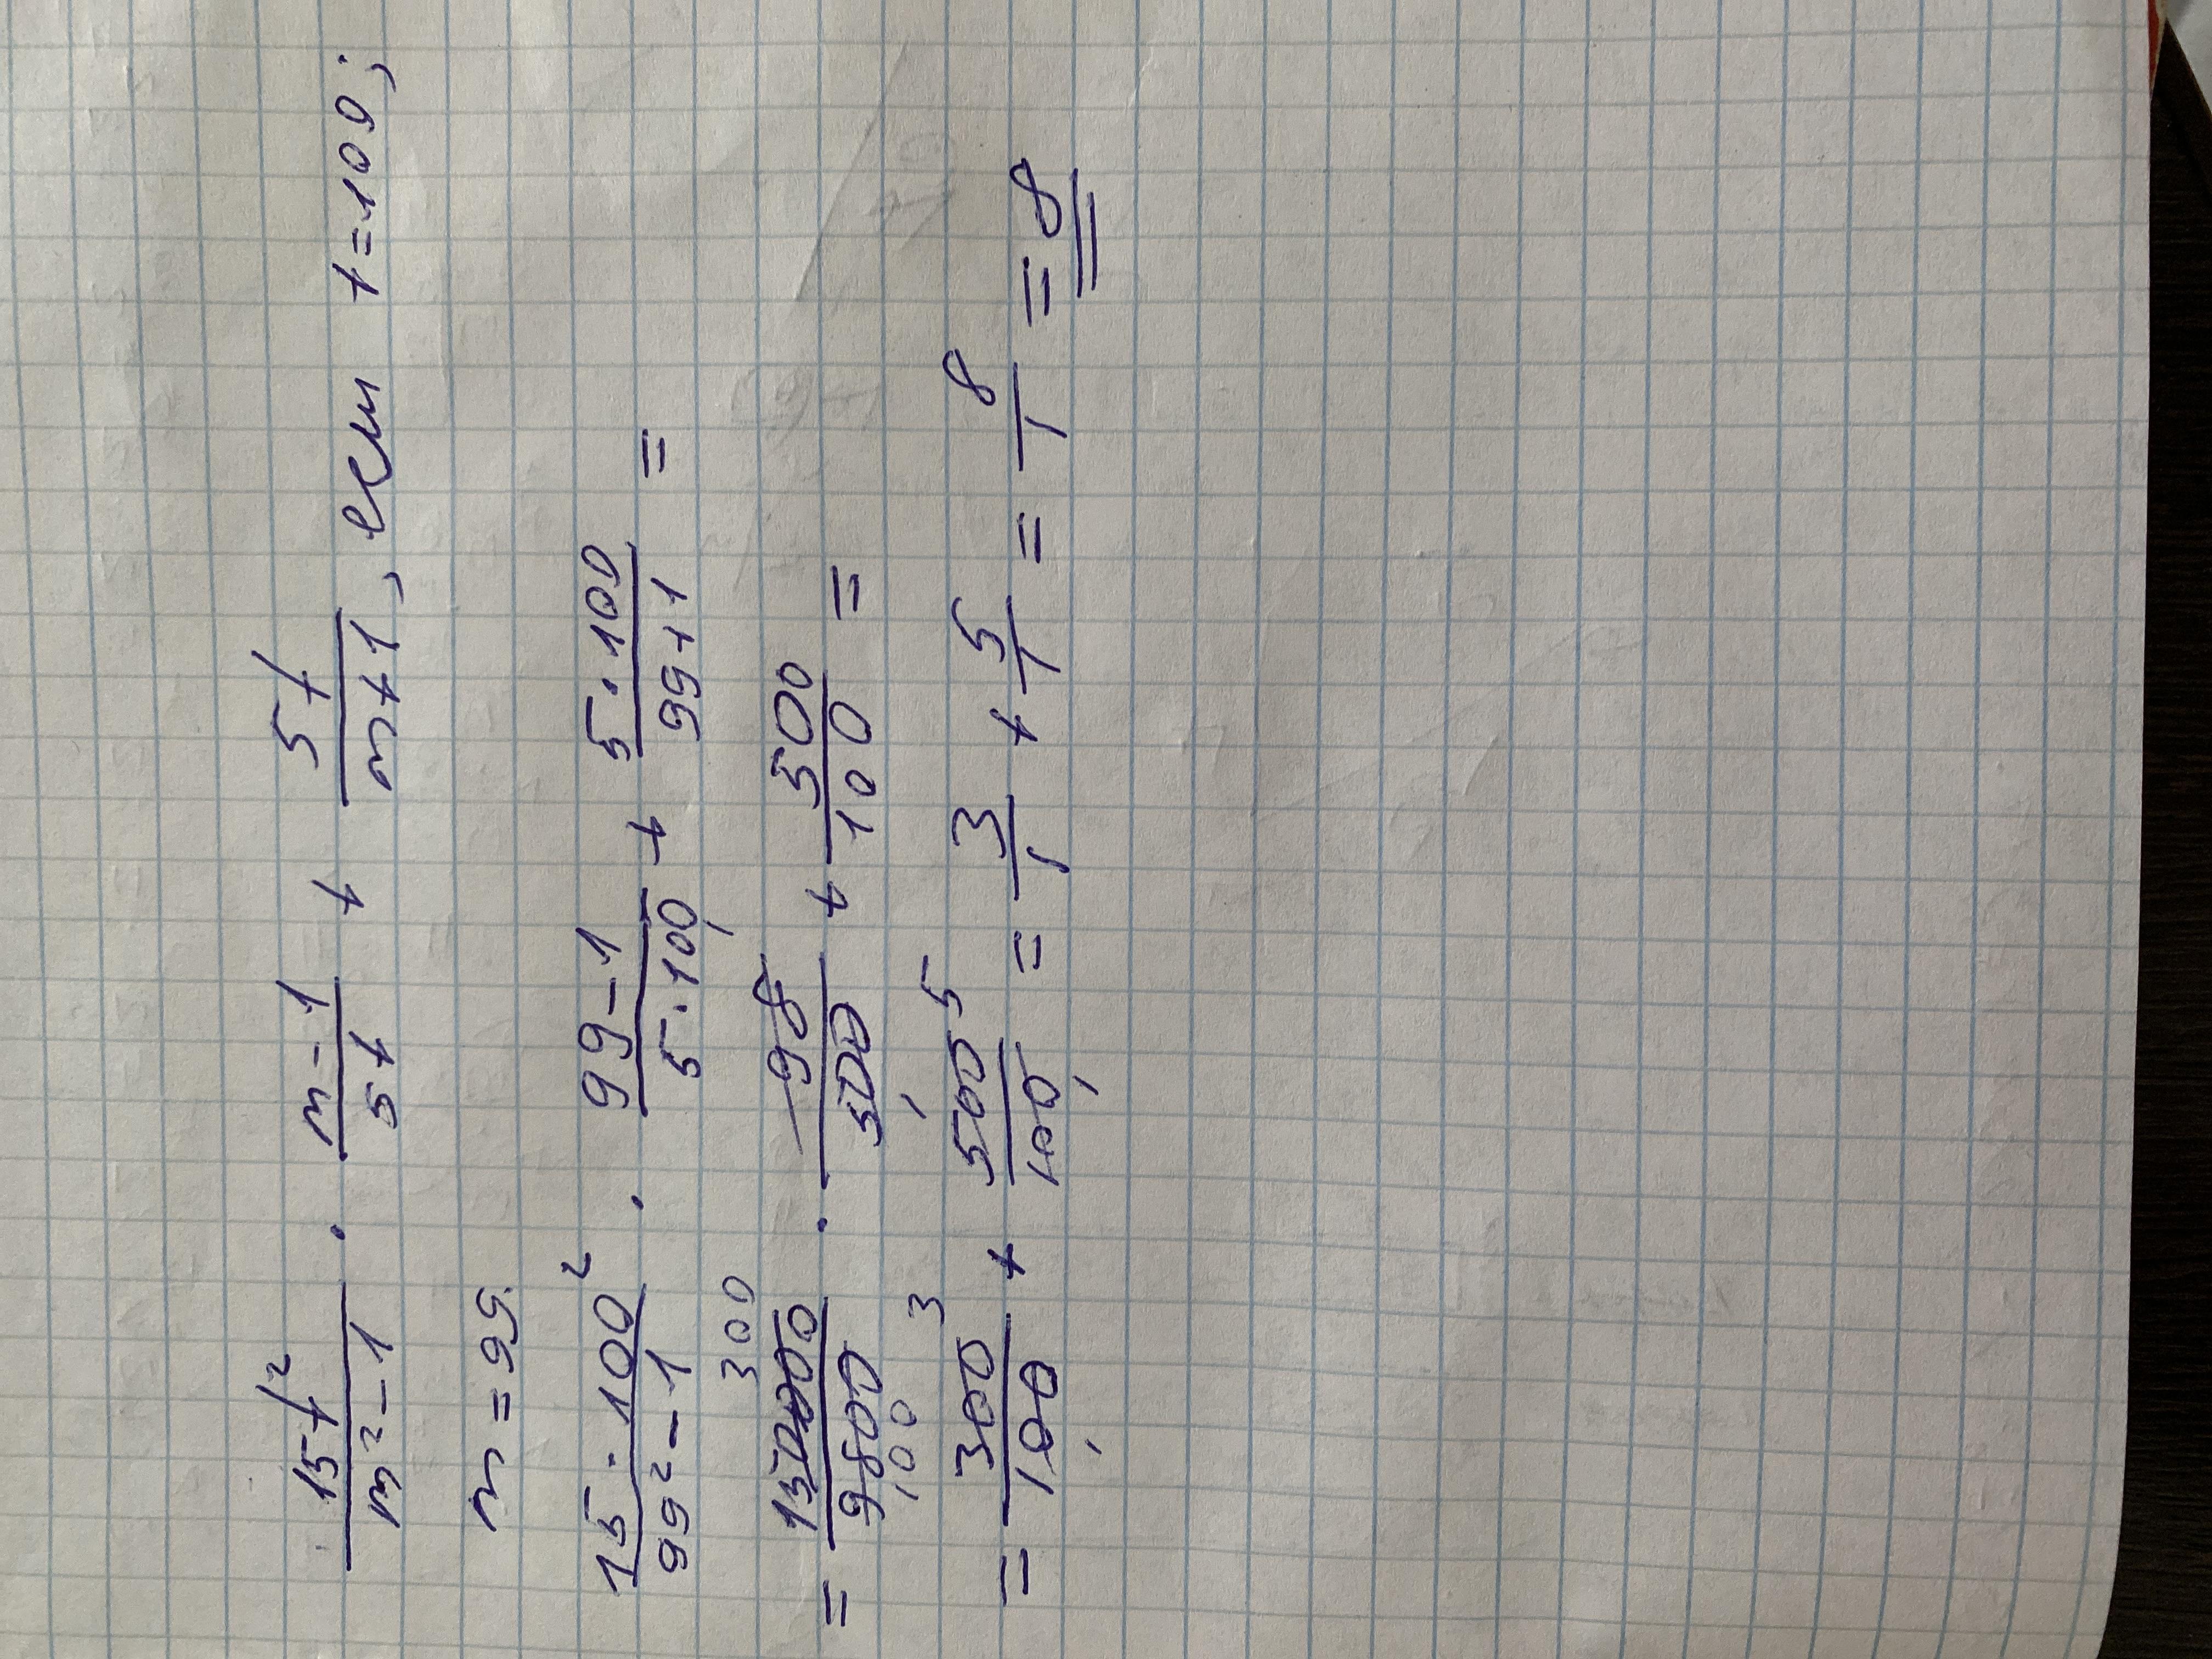 15t²/m²-1 · m-1/5t + 5t/m+1, если t=100;
m=99.
15·100²/99²-1 · 99-1/5·100 + 5·100/99+1 =
= 150000/9800 · 98/500 + 500/100 =
= 300/100 + 500/100 = 3/1 + 5/1 = 8/1 = 8